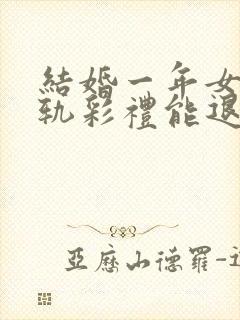 結婚一年女
軌彩禮能退
亞歷山德羅-